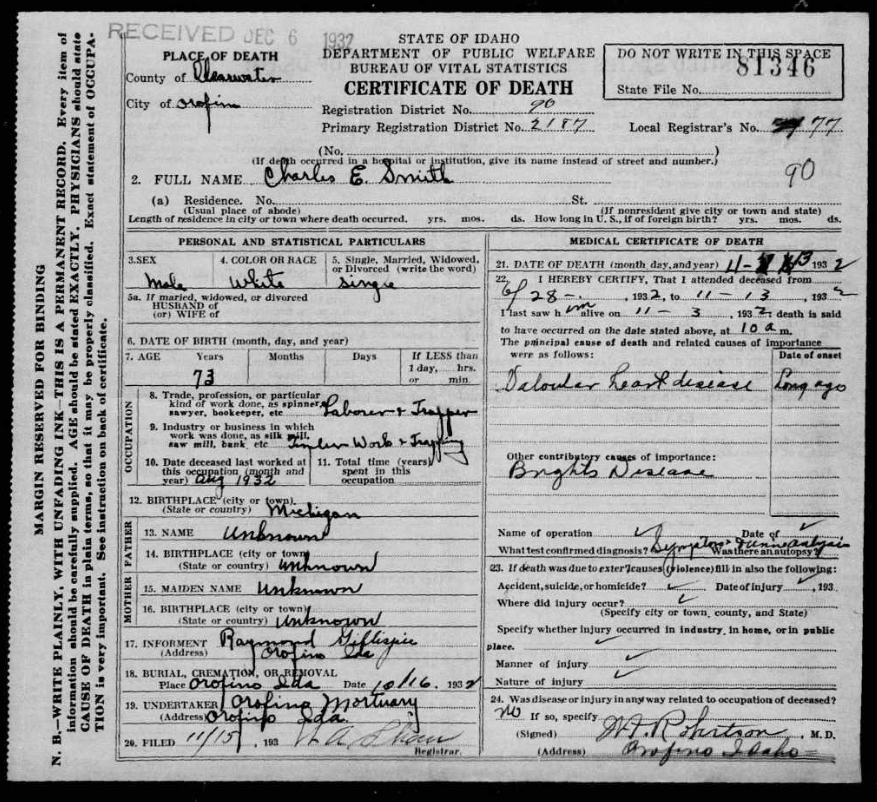 RECEIVED DEC 6 1932
STATE OF IDAHO
DEPARTMENT OF PUBLIC WELFARE
BUREAU OF VITAL STATISTICS
CERTIFICATE OF DEATH
DO NOT WRITE IN THIS SPACE
81346
State File No.
PLACE OF DEATH
County of Clearwater
City of Orofino
Registration District No. 90
Primary Registration District No. 2187
Local Registrar's No. 77
(No. )
(If death occurred in a hospital or institution, give its name instead of street and number.)
90
2. FULL NAME Charles E. Smith
(a) Residence. No. St.
(Usual place of abode) (If nonresident give city or town and state)
Length of residence in city or town where death occurred. yrs. mos. ds. How long in U. S., if of foreign birth? yrs. mos. ds.
PERSONAL AND STATISTICAL PARTICULARS
3. SEX 4. COLOR OR RACE 5. Single, Married, Widowed,
or Divorced (write the word)
Male White Single
5a. If maried, widowed, or divorced
HUSBAND OF
(or) WIFE of
6. DATE OF BIRTH (month, day, and year)
7. AGE Years Months Days If LESS than
1 day, hrs.
or min.
73
OCCUPATION
8. Trade, profession, or particular
kind of work done, as spinner,
sawyer, bookeeper, etc Laborer & Trapper
9. Industry or business in which
work was done, as silk mill,
saw mill, bank, etc Timber Work & Trapping
10. Date deceased last worked at
this occupation (month and
year) Aug 1932
11. Total time (years)
spent in this
occupation
12. BIRTHPLACE (city or town)
(State or country) Michigan
FATHER
13. NAME Unknown
14. BIRTHPLACE (city or town
(State or country) Unknown
MOTHER
15. MAIDEN NAME Unknown
16. BIRTHPLACE (city or town)
(State or country) Unknown
17. INFORMENT Raymond Gillespie
(Address) Orofino Ida
18. BURIAL, CREMATION, OR REMOVAL
Place Orofino Ida Date 10/16 1932
19. UNDERTAKER Orofino Mortuary
(Address) Orofino Ida.
20. FILED 11/15, 193
Registrar.
MEDICAL CERTIFICATE OF DEATH
21. DATE OF DEATH (month, day, and year) 11- 13 1932
22. I HEREBY CERTIFY, That I attended deceased from
28-, 1932, to 11-13, 1932
I last saw him alive on 11-3, 1932 death is said
to have occurred on the date stated above, at 10 a m.
The principal cause of death and related causes of importance
were as follows:
Date of onset
Valvular heart disease Long ago
Other contributory causes of importance:
Brights Disease
Name of operation ✓ Date of ✓
What test confirmed diagnosis? Symptoms Was there an autopsy?
23. If death was due to exter'l causes (violence) fill in also the following:
Accident, suicide, or homicide? ✓ Date of injury ✓, 193
Where did injury occur? ✓
(Specify city or town, county, and State)
Specify whether injury occurred in industry, in home, or in public
place. ✓
Manner of injury ✓
Nature of injury ✓
24. Was disease or injury in any way related to occupation of deceased?
No If so, specify
(Signed) Robertson, M. D.
(Address) Orofino Idaho
MARGIN RESERVED FOR BINDING
N. B.—WRITE PLAINLY, WITH UNFADING INK—THIS IS A PERMANENT RECORD. Every item of
information should be carefully supplied. AGE should be stated EXACTLY. PHYSICIANS should state
CAUSE OF DEATH in plain terms, so that it may be properly classified. Exact statement of OCCUPA-
TION is very important. See instruction on back of certificate.